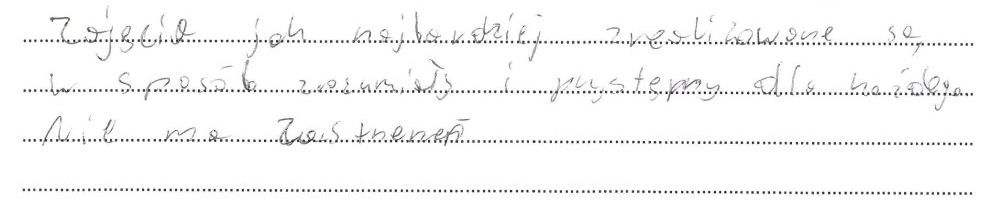 Zajęcia jak najbardziej zrealizowane są,
w sposób zrozumiały i przystępny dla każdego
Nie ma zastrzeżeń